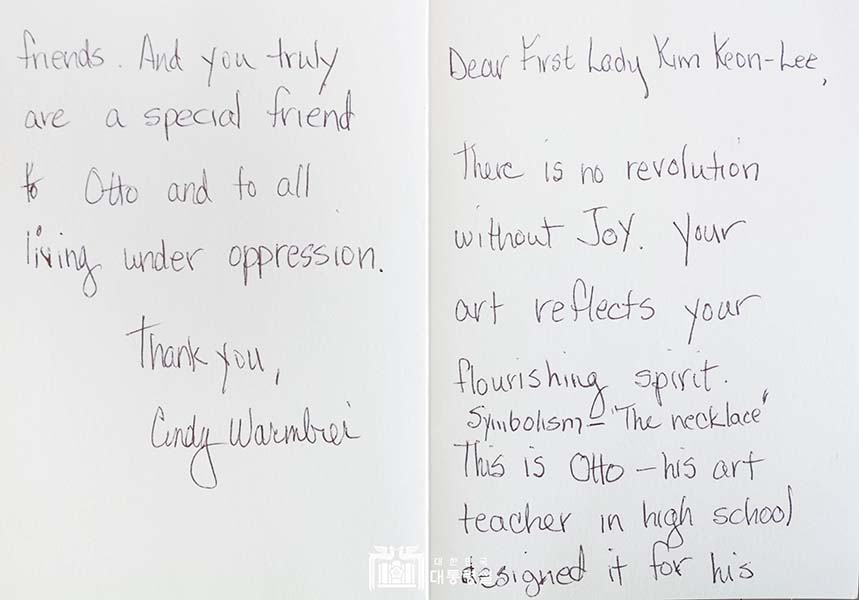 Dear First Lady Kim Keon-Lee,
There is no revolution
without Joy. your
art reflects your
flourishing spirit.
Symbolism – "The necklace"
This is Otto – his art
teacher in high school
designed it for his
friends. And you truly
are a special friend
to Otto and to all
living under oppression.
Thank you,
Cindy Warmbier
대한민국
대통령실